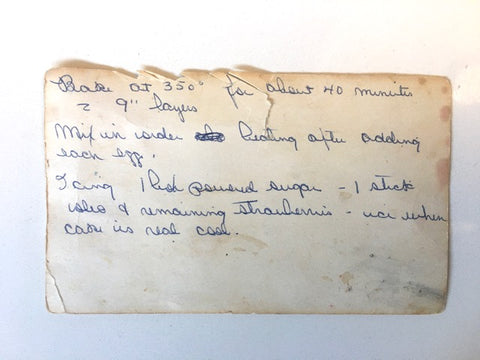 Bake at 350° for about 40 minutes
2 9" layers
Mix in order beating after adding
each egg.
Icing 1 box powered sugar - 1 stick
oleo & remaining strawberries - ice when
cake is real cool.